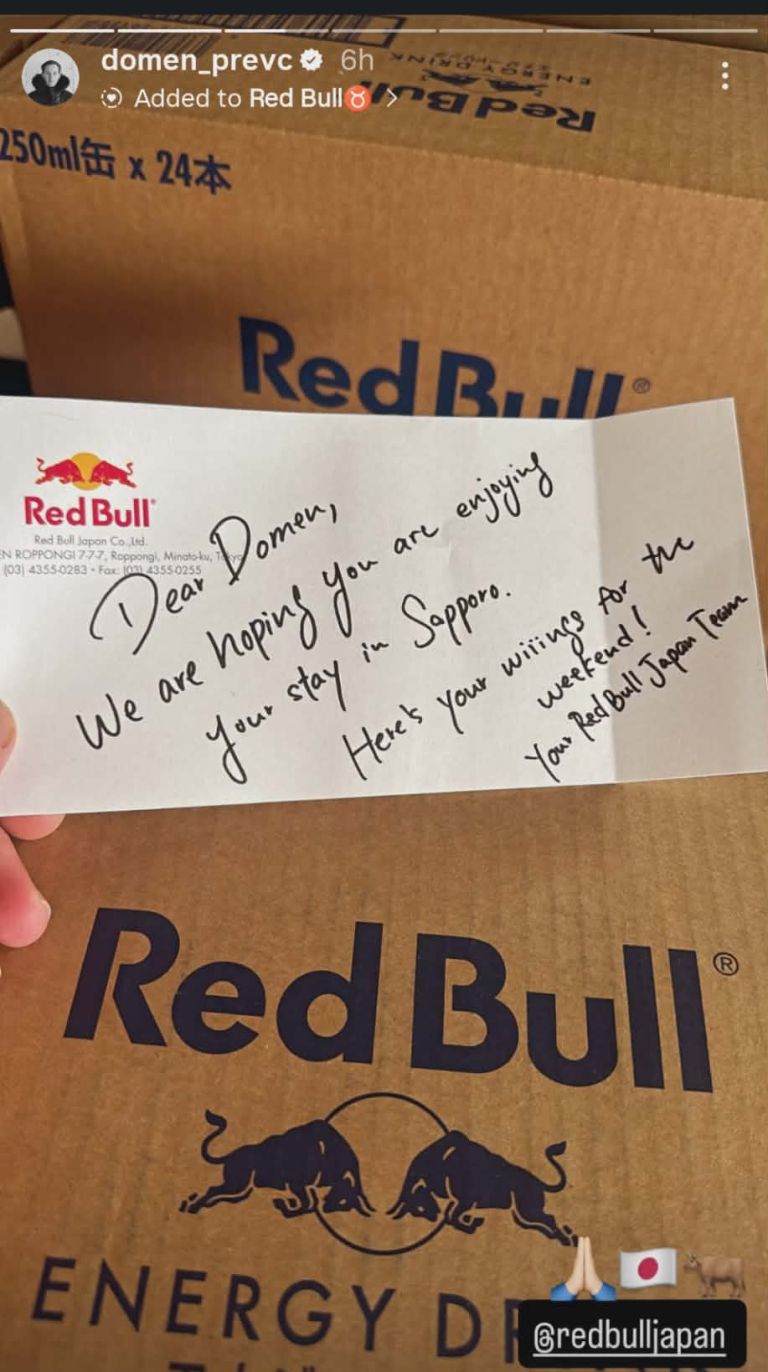 domen_prevc 6h
Added to Red Bull♉ >
ENERGY DRINK
Red Bull
250ml缶 x 24本
Red Bull®
Red Bull®
Red Bull Japan Co.,Ltd.
N ROPPONGI 7-7-7, Roppongi, Minato-ku, Tokyo
(03) 4355-0283 • Fax: (03) 4355-0255
Dear Domen,
We are hoping you are enjoying
your stay in Sapporo.
Here's your wiiings for the
weekend!
Your Red Bull Japan Team
Red Bull®
ENERGY DR
🙏🏻🇯🇵🐂
@redbulljapan